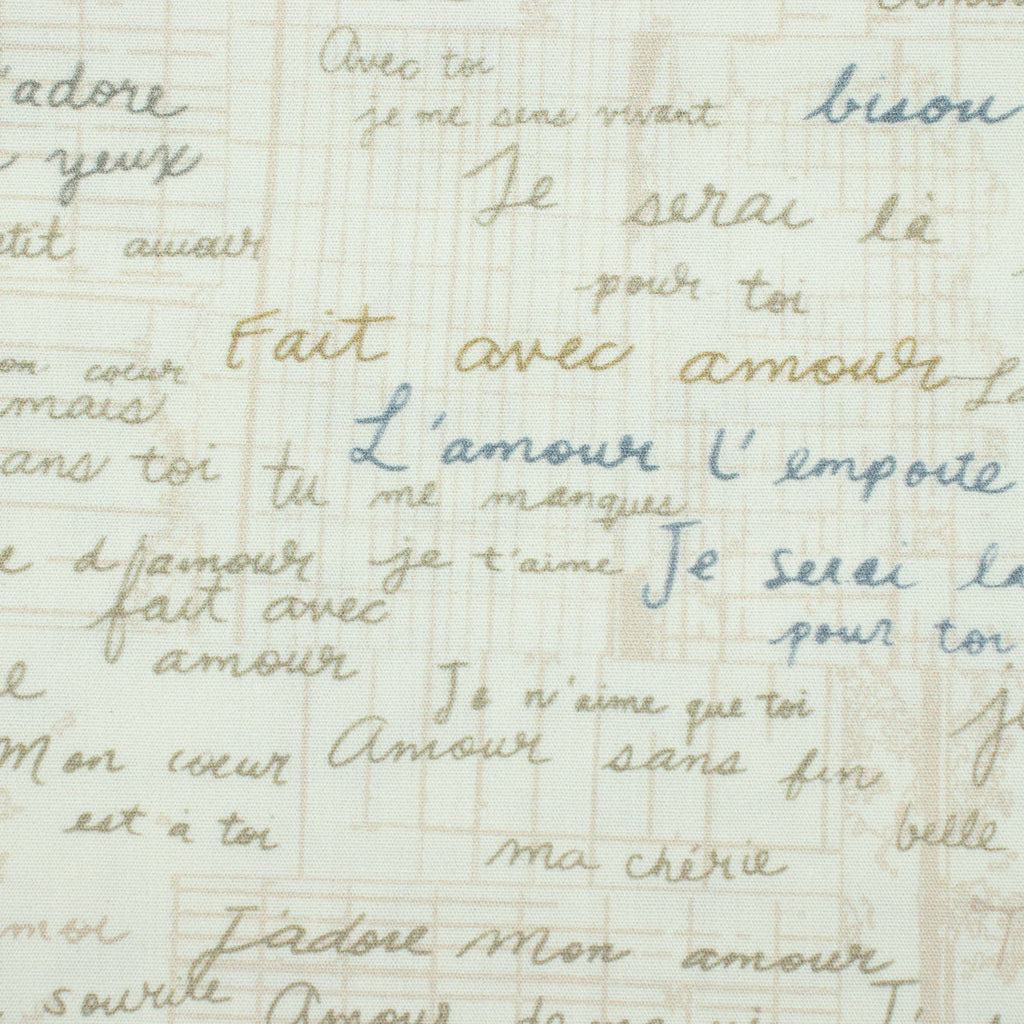 Avec toi
'adore
bisou
je me sens vivant
yeux
Je serai là
petit amour
pour toi
Fait avec amour
mon coeur
jamais
L'amour l'emporte
sans toi
tu me manques
d'amour
je t'aime
Je serai là
fait avec
pour toi
amour
Je n'aime que toi
Mon coeur
Amour sans fin
est à toi
belle
ma chérie
moi
J'adore mon amour
sourire
Amour de ma vie